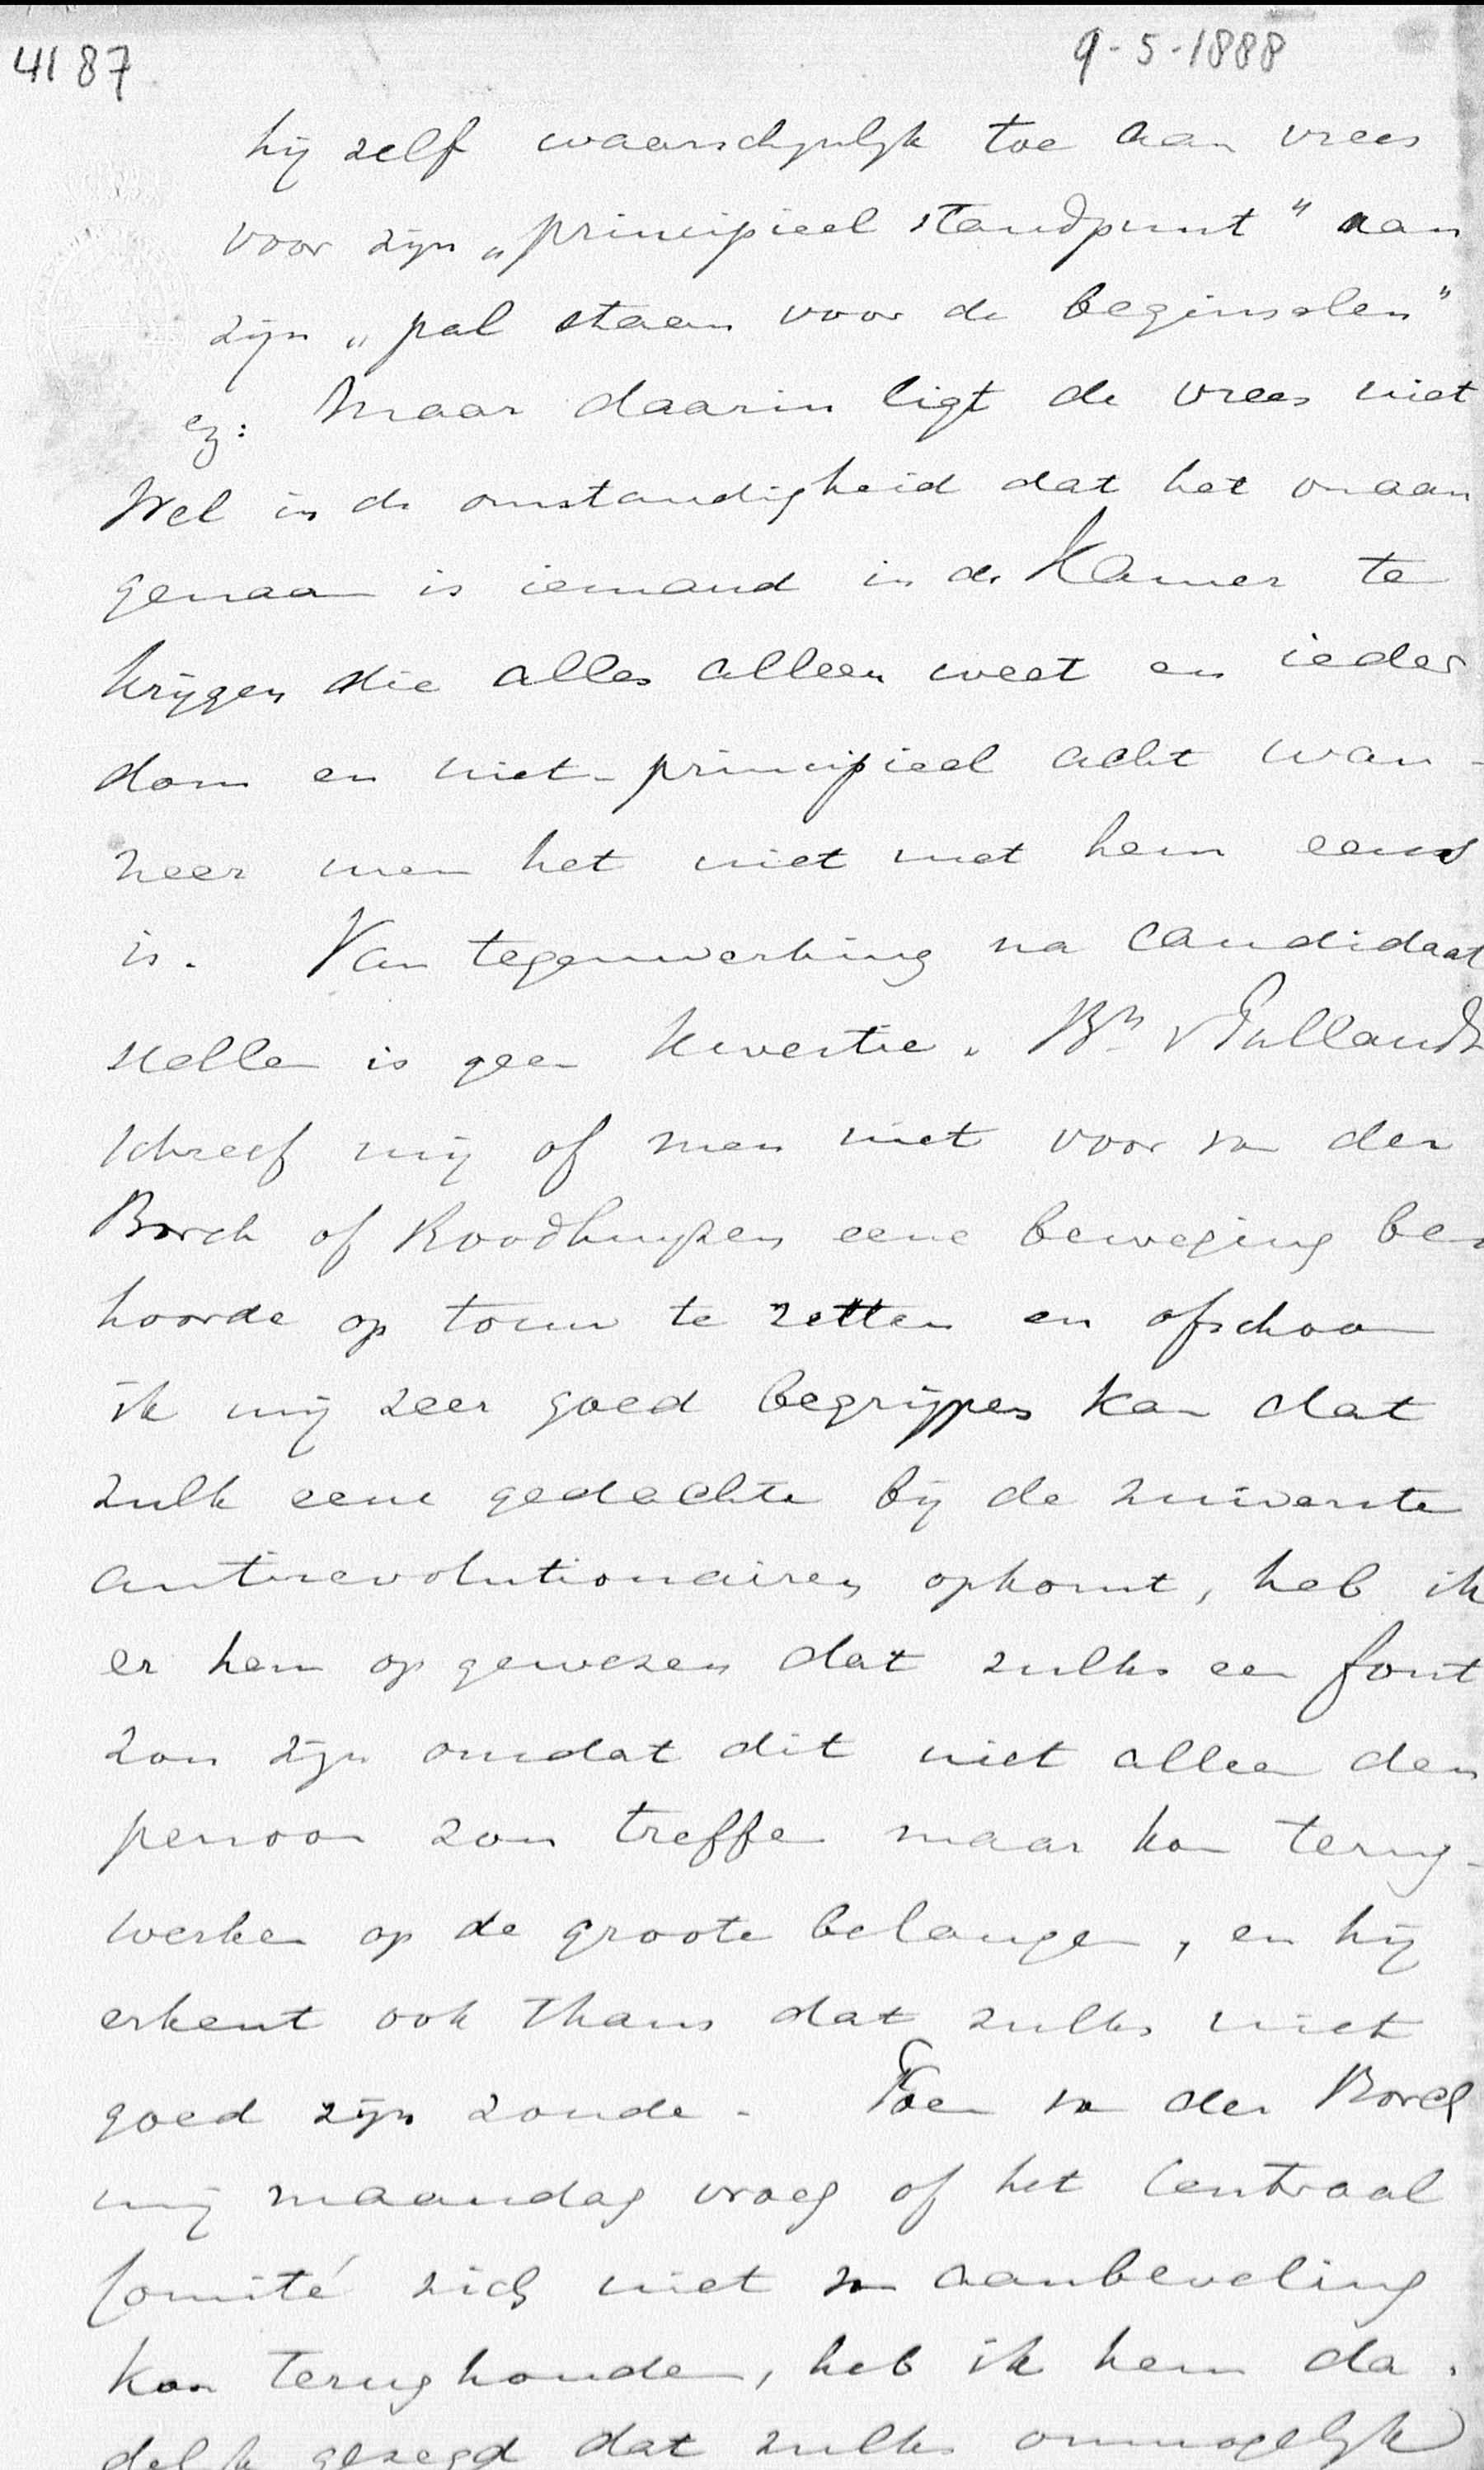 4187
9-5-1888
hij zelf waarschijnlijk toe aan vrees
voor zijn „principieel standpunt" aan
zijn „pal staan voor de beginselen"
ez: Maar daarin ligt de vrees niet
Wel in de omstandigheid dat het onaan
genaam is iemand in de Kamer te
krijgen die alles alleen weet en ieder
dom en niet-principieel acht wan-
neer men het niet met hem eens
is. Van tegenwerking na candidaat
stellen is geen kwestie. Bn
schreef mij of men niet voor van der
Borch of Roodhuyzen eene beweging be-
hoorde op touw te zetten en ofschoon
ik mij zeer goed begrijpen kan dat
zulk eene gedachte bij de zuiverste
antirevolutionairen opkomt, heb ik
er hem op gewezen dat zulks een fout
zou zijn omdat dit niet alleen den
persoon zou treffen maar kan terug-
werken op de groote belangen, en hij
erkent ook thans dat zulks niet
goed zijn zoude. Toen van der Borch
mij maandag vroeg of het Centraal
Comité zich niet van aanbeveling
kon terughouden, heb ik hem da-
delijk gezegd dat zulks onmogelijk